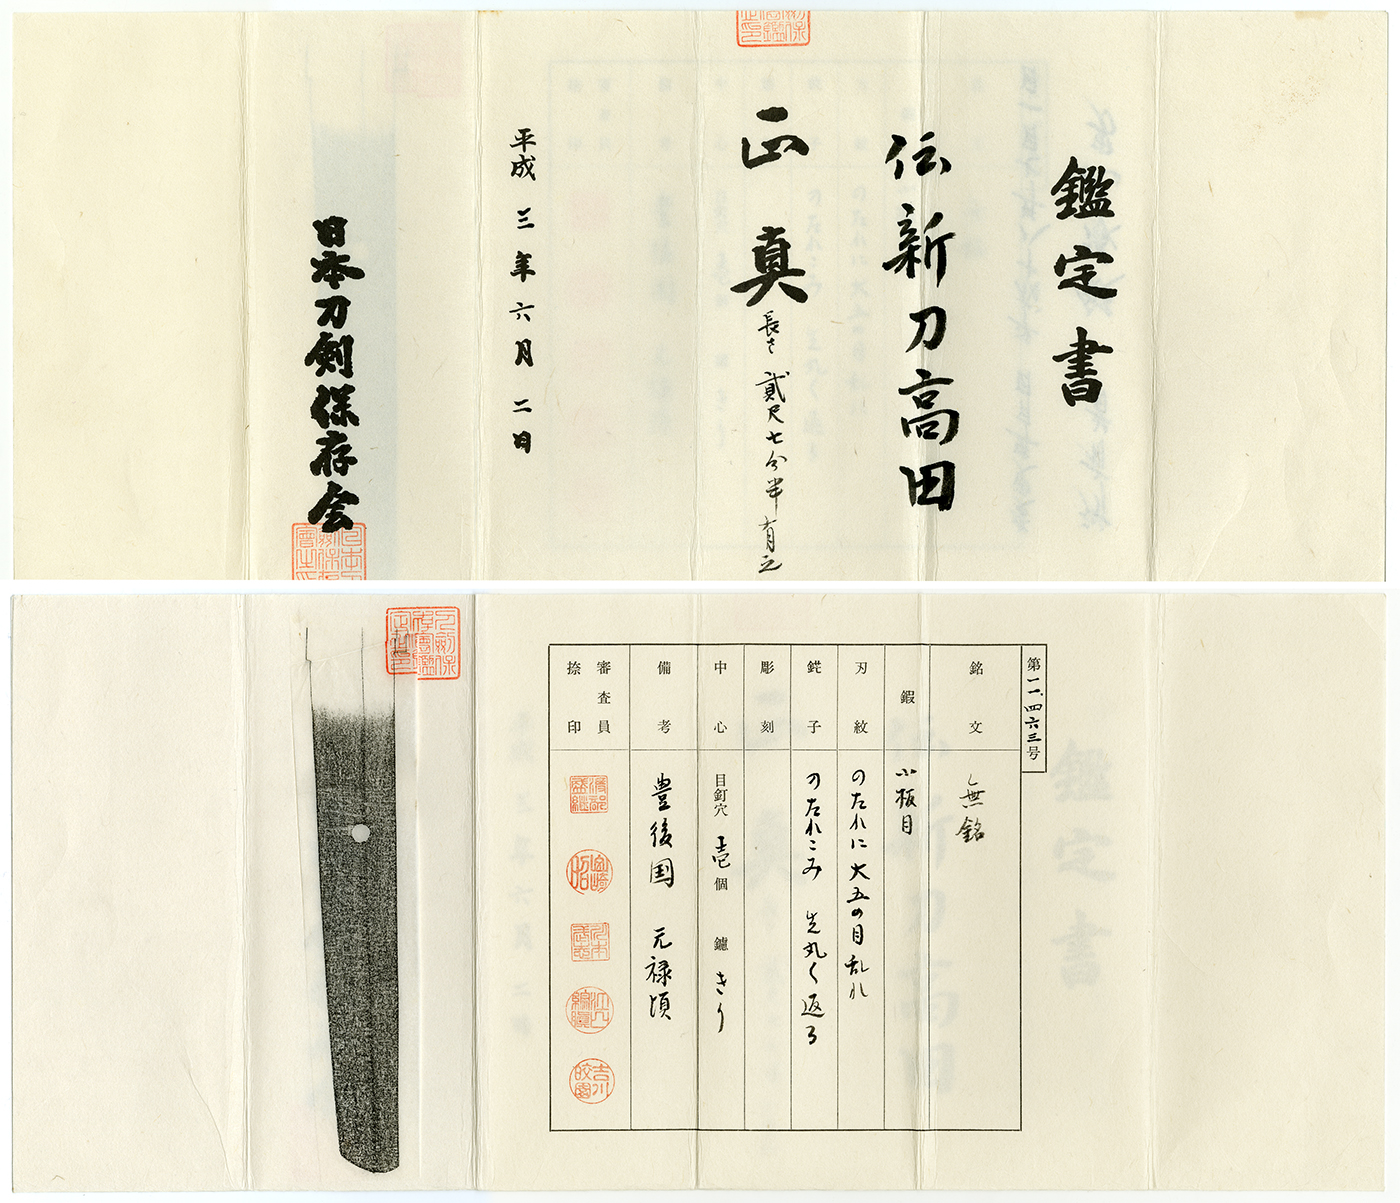 鑑定書
伝新刀高田
正真
長さ 貮尺七分半有之
平成三年六月二日
日本刀剣保存会
第一一、四六三号
銘文
無銘
鍜
小板目
刃紋
のたれに大五の目乱れ
鋩子
のたれこみ 先丸く返る
彫刻
中心
目釘穴 壱個 鑢 きり
備考
豊後国 元禄頃
審査員
捺印